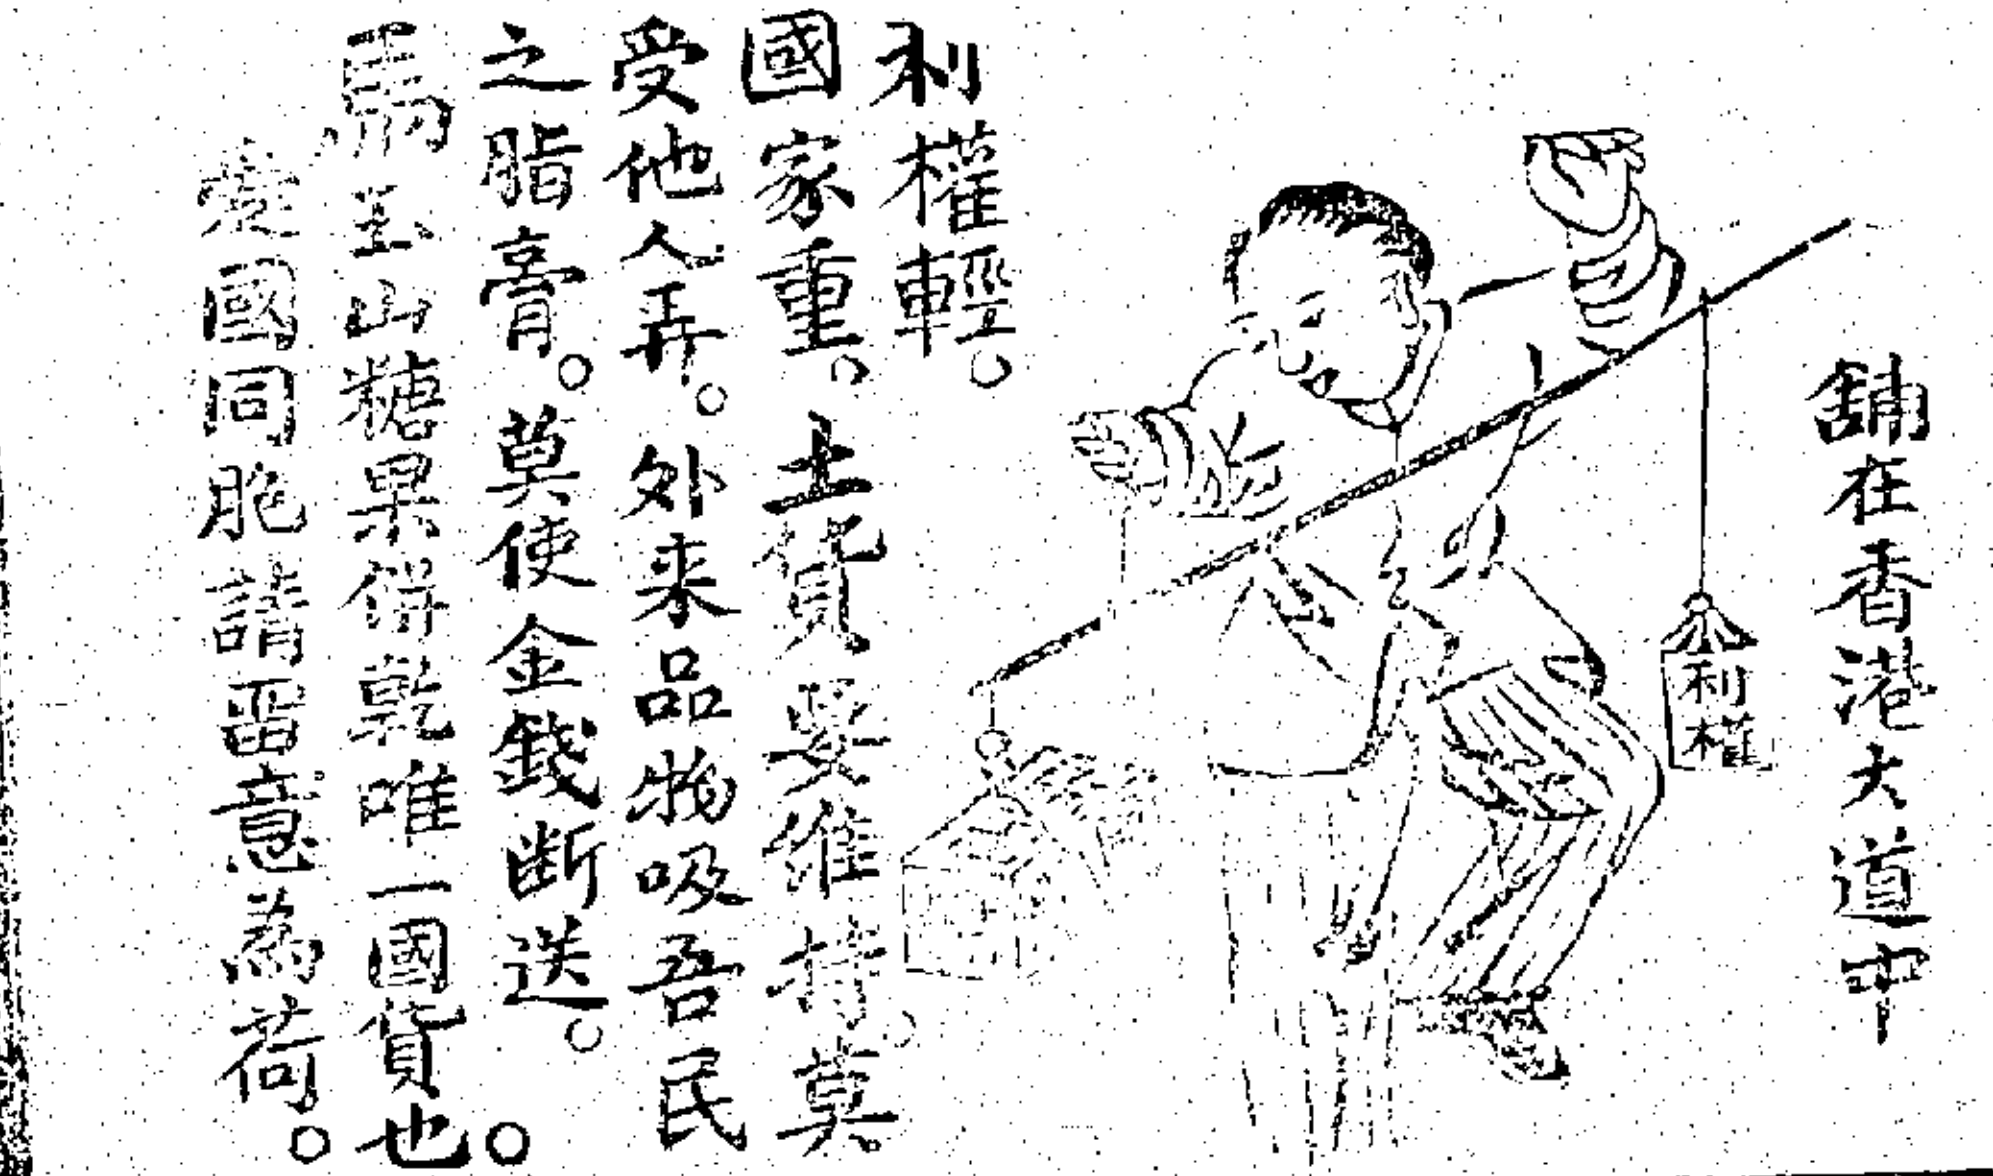 舖在香港大道中
利權
利權輕。
國家重、土貨要維持。莫
受他人弄。外来品物吸吾民
之脂膏。莫使金錢断送。
馬玉山糖果餅乾唯一國貨也。
愛國同胞請畱意為荷。